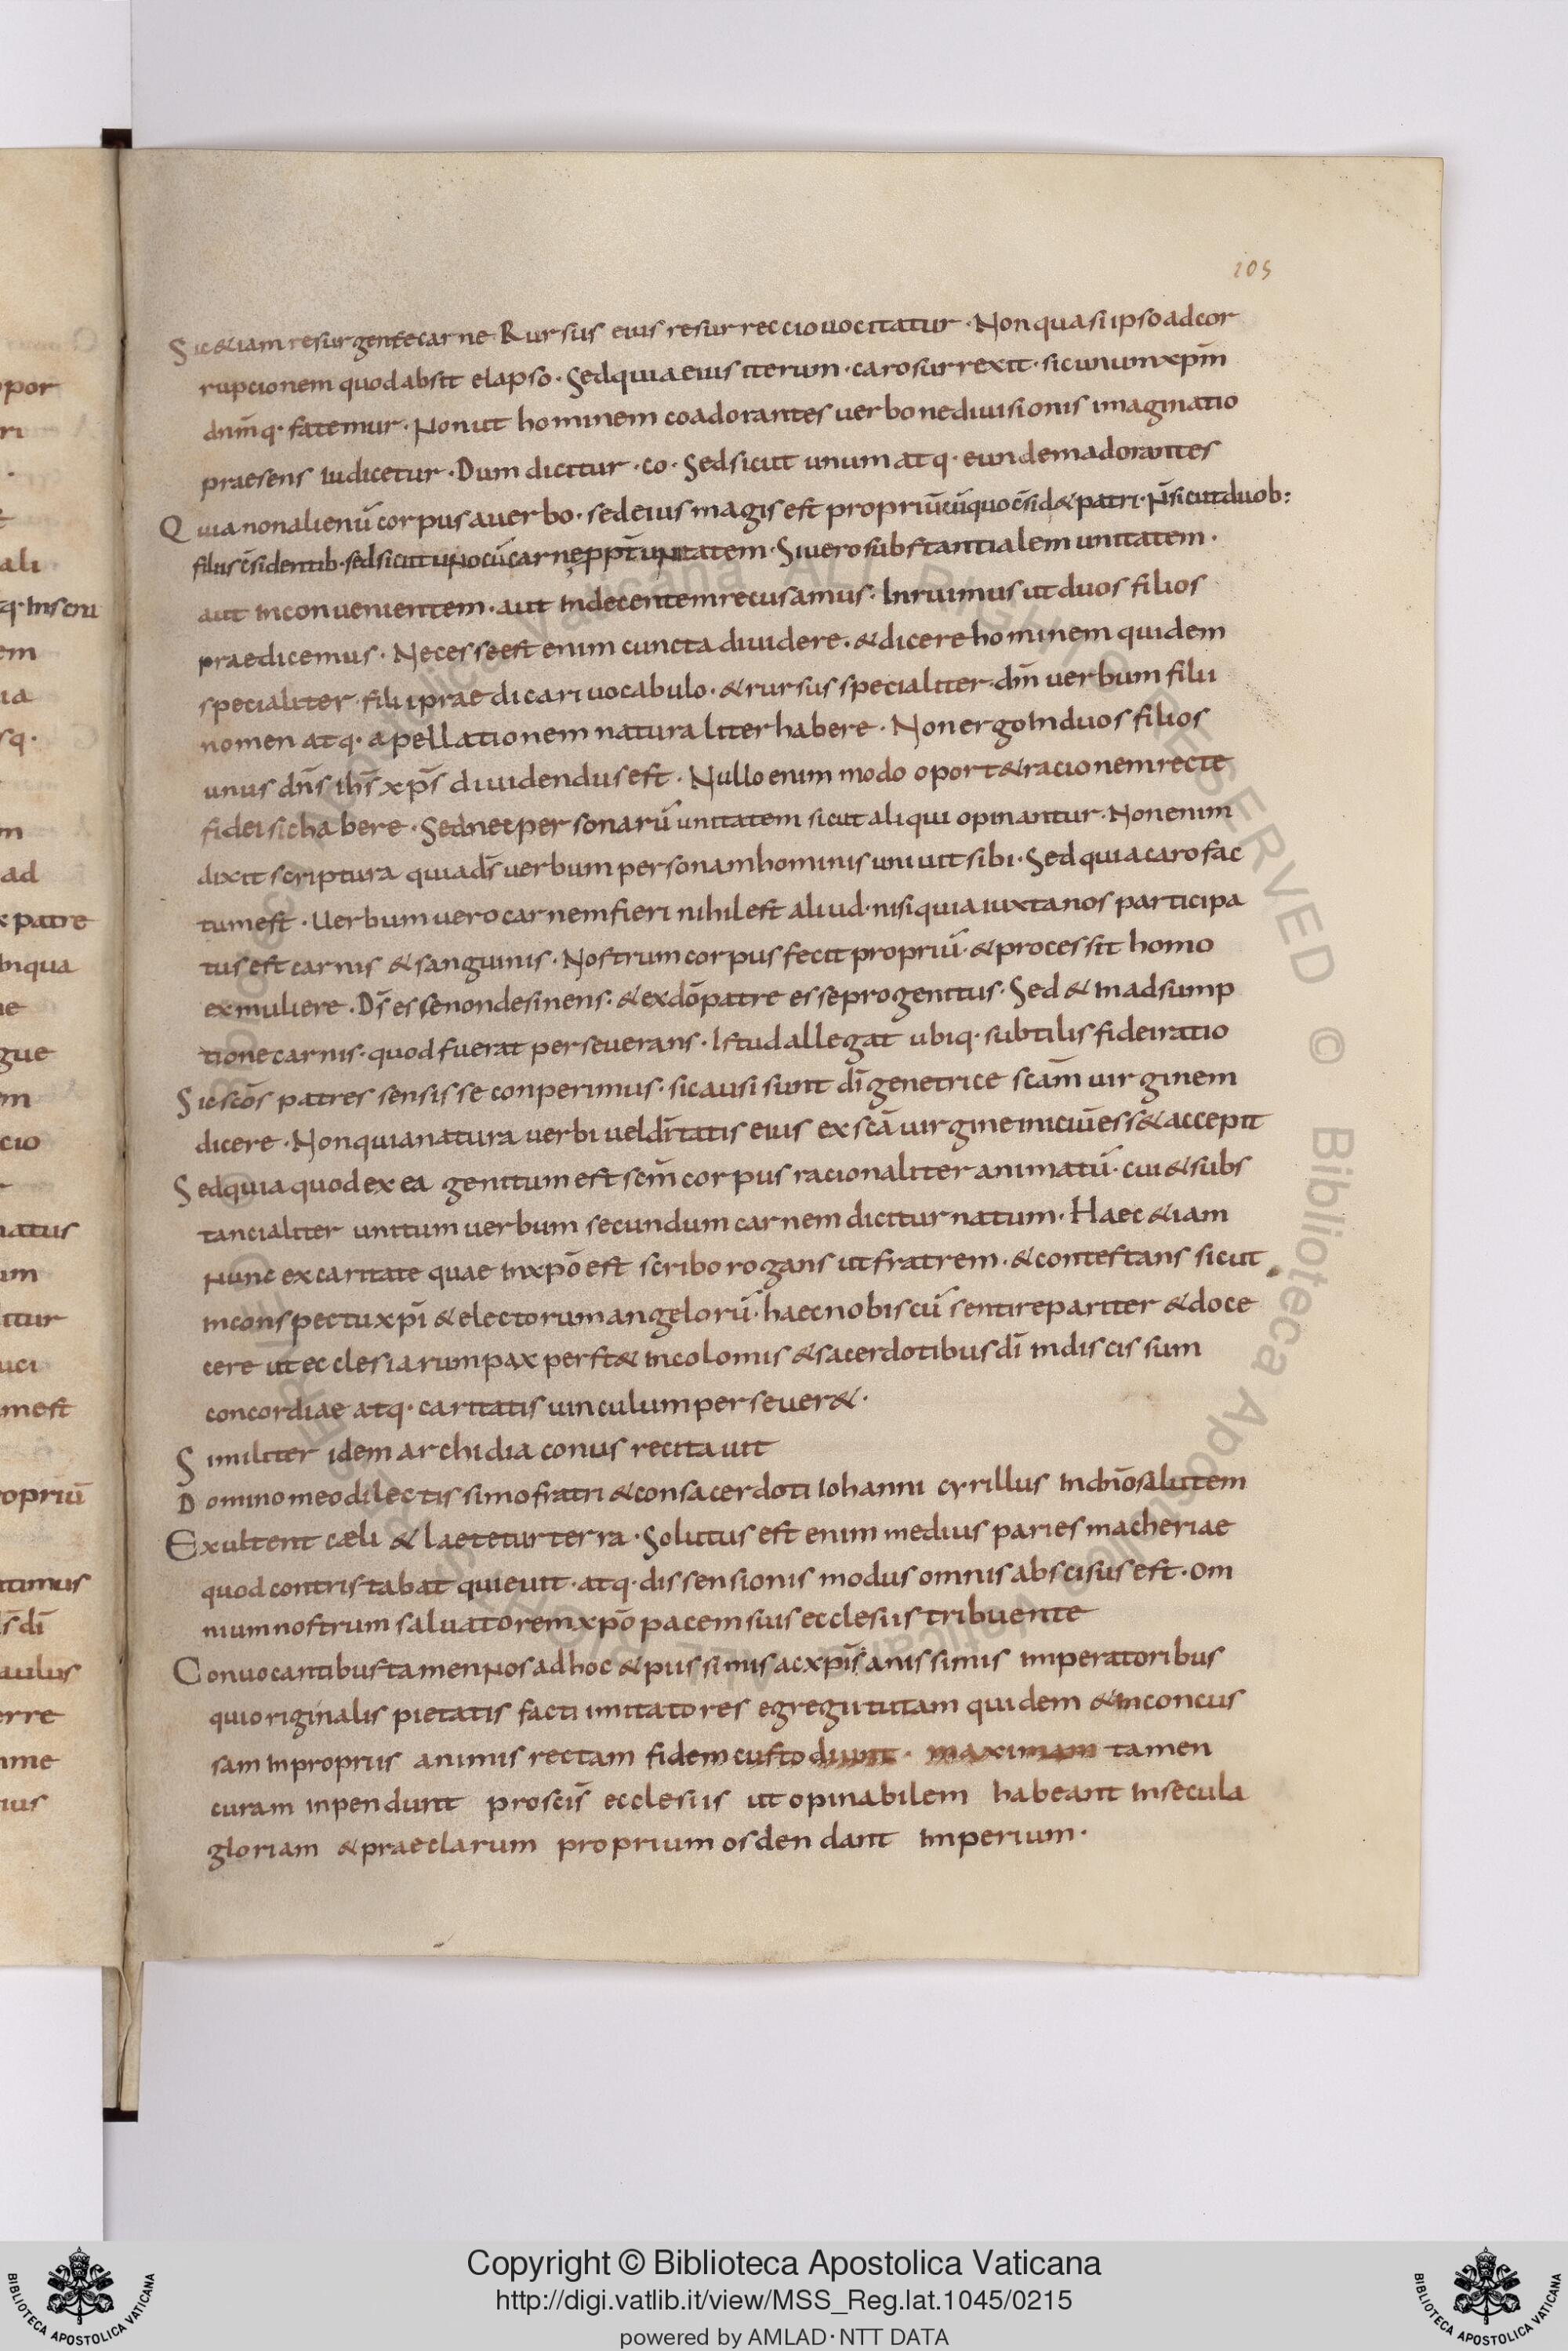 105
Sic &iam resurgente carne Rursus eius resurreccio uocitatur · Non quasi ipso ad cor
rupcionem quod absit elapso · Sed quia eius iterum · caro surrexit · sic unum xp̄m
dnm̄q· fatemur · Non ut hominem coadorantes uerbo ne diuisionis imaginatio
praesens iudicetur · Dum dicitur · co · Sed sicut unum atq· eundem adorantes
Quia non alienū corpus a uerbo · sed eius magis est propriū cū quo c̄sid& patri · N̄ sicut duob:
filiis c̄sidentib· sed sicut uno cū carne ppt̄ unitatem · Si uero substantialem unitatem ·
aut inconuenientem · aut indecentem recusamus · Inruimus ut duos filios
praedicemus · Necesse est enim cuncta diuidere · & dicere hominem quidem
specialiter filii praedicari uocabulo · & rursus specialiter dm̄ uerbum filii
nomen atq· apellationem naturaliter habere · Non ergo in duos filios
unus dn̄s ih̄s xp̄s diuidendus est · Nullo enim modo oport& racionem recte
fidei sic habere · Sed nec personarū unitatem sicut aliqui opinantur · Non enim
dixit scriptura quia ds̄ uerbum personam hominis uniuit sibi · Sed quia caro fac
tum est · Uerbum uero carnem fieri nihil est aliud · nisi quia iuxta nos participa
tus est carnis & sanguinis · Nostrum corpus fecit propriū · & processit homo
ex muliere · Ds̄ esse non desinens · & ex dō patre esse progenitus · Sed & in adsump
tione carnis · quod fuerat perseuerans · Istud allegat ubiq· subtilis fidei ratio
Sic scōs patres sensisse conperimus · sic ausi sunt dī genetrice scām uirginem
dicere · Non quia natura uerbi uel dītatis eius ex scā uirgine iniciū ess& accepit
Sed quia quod ex ea genitum est scm̄ corpus racionaliter animatū · cui & subs
tancialiter unitum uerbum secundum carnem dicitur natum · Haec &iam
Nunc ex caritate quae in xpō est scribo rogans ut fratrem · & contestans sicut
in conspectu xpī & electorum angelorū · haec nobiscū sentire pariter & doce
cere ut ecclesiarum pax perst& incolomis & sacerdotibus dī indiscissum
concordiae atq· caritatis uinculum perseuer& ·
Similiter idem archidiaconus recitauit
Domino meo dilectissimo fratri & consacerdoti Iohanni cyrillus in dn̄o salutem
Exultent cæli & laetetur terra · Solutus est enim medius paries macheriae
quod contristabat quieuit · atq· dissensionis modus omnis abscisus est · om
nium nostrum saluatorem xpō pacem suis ecclesiis tribuente
Conuocantibus tamen nos ad hoc & piissimis ac xpīs̄anissimis imperatoribus
qui originalis pietatis facti imitatores egregii tutam quidem & inconcus
sam in propriis animis rectam fidem custodiunt · maximam tamen
curam inpendunt pro scīs ecclesiis ut opinabilem habeant in secula
gloriam & praeclarum proprium osdendant imperium ·
Copyright © Biblioteca Apostolica Vaticana
http://digi.vatlib.it/view/MSS_Reg.lat.1045/0215
powered by AMLAD·NTT DATA